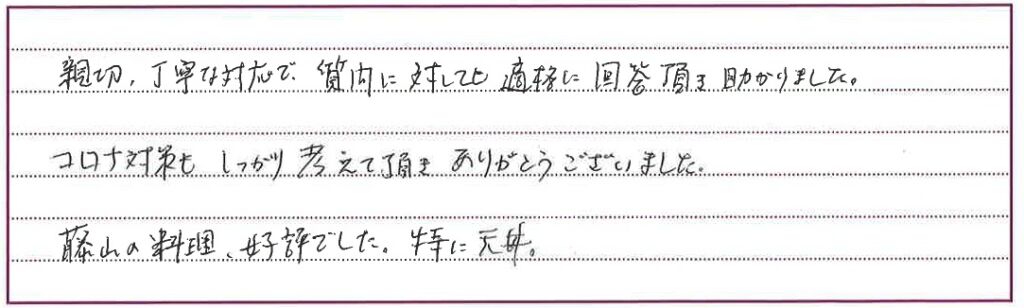 親切、丁寧な対応で、質問に対しても適格に回答頂き助かりました。
コロナ対策もしっかり考えて頂きありがとうございました。
藤山の料理、好評でした。特に天丼。